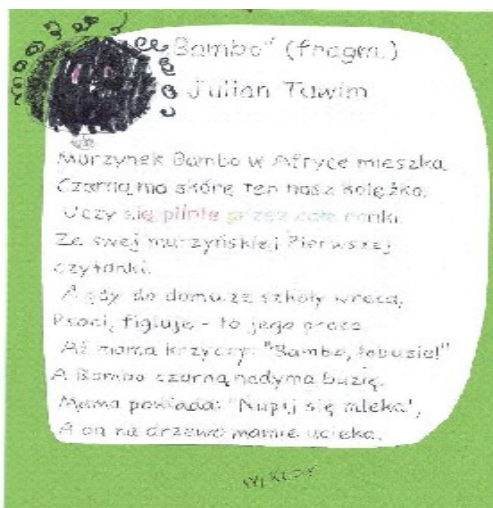 "Bambo" (fragm.)
Julian Tuwim
Murzynek Bambo w Afryce mieszka
Czarną ma skórę ten nasz koleżka.
Uczy się pilnie przez całe ranki
Ze swej murzyńskiej Pierwszej
czytanki.
A gdy do domu ze szkoły wraca,
Psoci, figluje - to jego praca
Aż mama krzyczy: "Bambo, łobuzie!"
A Bambo czarną nadyma buzię.
Mama powiada: "Napij się mleka",
A on na drzewo mamie ucieka.